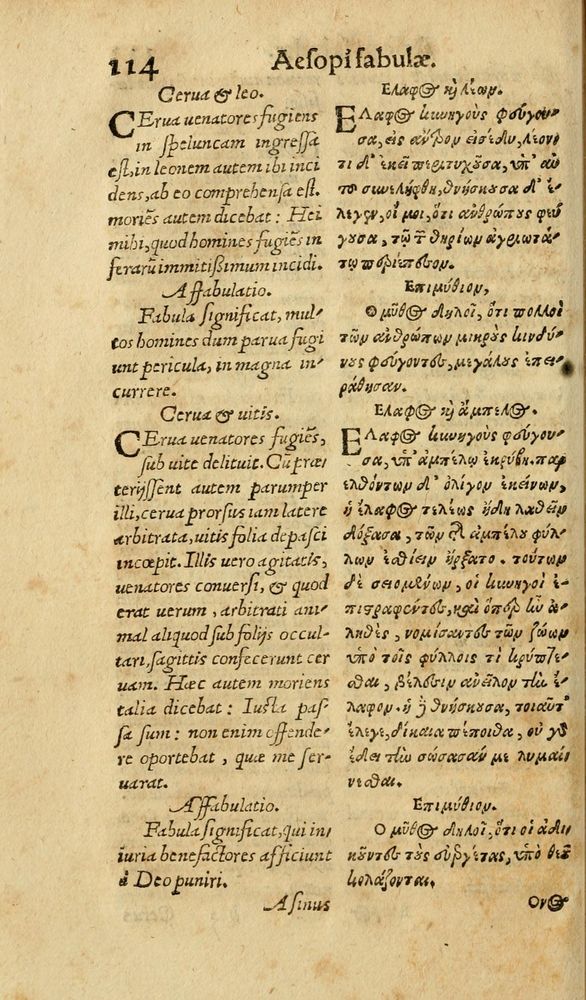 114 Aesopi fabulæ.
Cerua & leo.
CErua uenatores fugiens
in speluncam ingressa
est, in leonem autem ibi inci
dens, ab eo comprehensa est.
moriẽs autem dicebat: Hei
mihi, quod homines fugiẽs in
ferarũ immitißimum incidi.
Affabulatio.
Fabula significat, mul-
tos homines dum parua fugi
unt pericula, in magna in-
currere.
Cerua & uitis.
CErua uenatores fugiẽs,
sub uite delituit. Cũ præ
terijssent autem parumper
illi, cerua prorsus iam latere
arbitrata, uitis folia depasci
incœpit. Illis uero agitatis,
uenatores conuersi, & quod
erat uerum, arbitrati ani-
mal aliquod sub folijs occul-
tari, sagittis confecerunt cer
uam. Hæc autem moriens
talia dicebat: Iusta pas-
sa sum: non enim offende-
re oportebat, quæ me ser-
uarat.
Affabulatio.
Fabula significat, qui in-
iuria benefactores afficiunt
à Deo puniri.
Asinus
Ελαφος κὴ λέων.
ΕΛαφος κυνηγοὺς φεύγου-
σα, εἰς ἄντρον εἰσέδυ, λέοντι
τι δ' ἐκεῖ περιτυχοῦσα, ὑπ' αὐ
τοῦ συνελήφθη, θνήσκουσα δ' ἔ-
λεγεν, οἴ μοι, ὅτι ἀνθρώπους φεύ
γουσα, τῷ τ θηρίων ἀγριωτά-
τῳ περιέπεσον.
Επιμύθιον,
Ο μῦθος δηλοῖ, ὅτι πολλοὶ
τῶν ἀνθρώπων μικροὺς κινδύ-
νους φεύγοντες, μεγάλοις ἐπει-
ράθησαν.
Ελαφος κὴ ἄμπελος.
ΕΛαφος κυνηγοὺς φεύγου-
σα, ὑπ' ἀμπέλῳ ἐκρύβη. παρ
ελθόντων δ' ὀλίγον ἐκείνων,
ἡ ἔλαφος τελέως ἤδη λαθεῖν
δόξασα, τῶν τῆς ἀμπέλου φύλ-
λων ἐσθίειν ἤρξατο. τούτων
δὲ σειομένων, οἱ κυνηγοὶ ἐ-
πιστραφέντες, καὶ ὅπερ ἦν ἀ-
ληθὲς, νομίσαντες τῶν ζώων
ὑπὸ τοῖς φύλλοις τὶ κρύπτε-
σθαι, βέλεσιν ἀνεῖλον τὴν ἔ-
λαφον. ἡ ἢ θνήσκουσα, τοιαῦτ'
ἔλεγε, δίκαια πέποιθα, οὐ γὸ
ἔδει τὴν σώσασάν με λυμαί-
νεσθαι.
Επιμύθιον.
Ο μῦθος δηλοῖ, ὅτι οἱ ἀδι-
κοῦντες τοὺς εὐεργέτας, ὑπὸ θεοῦ
κολάζονται.
Ονος